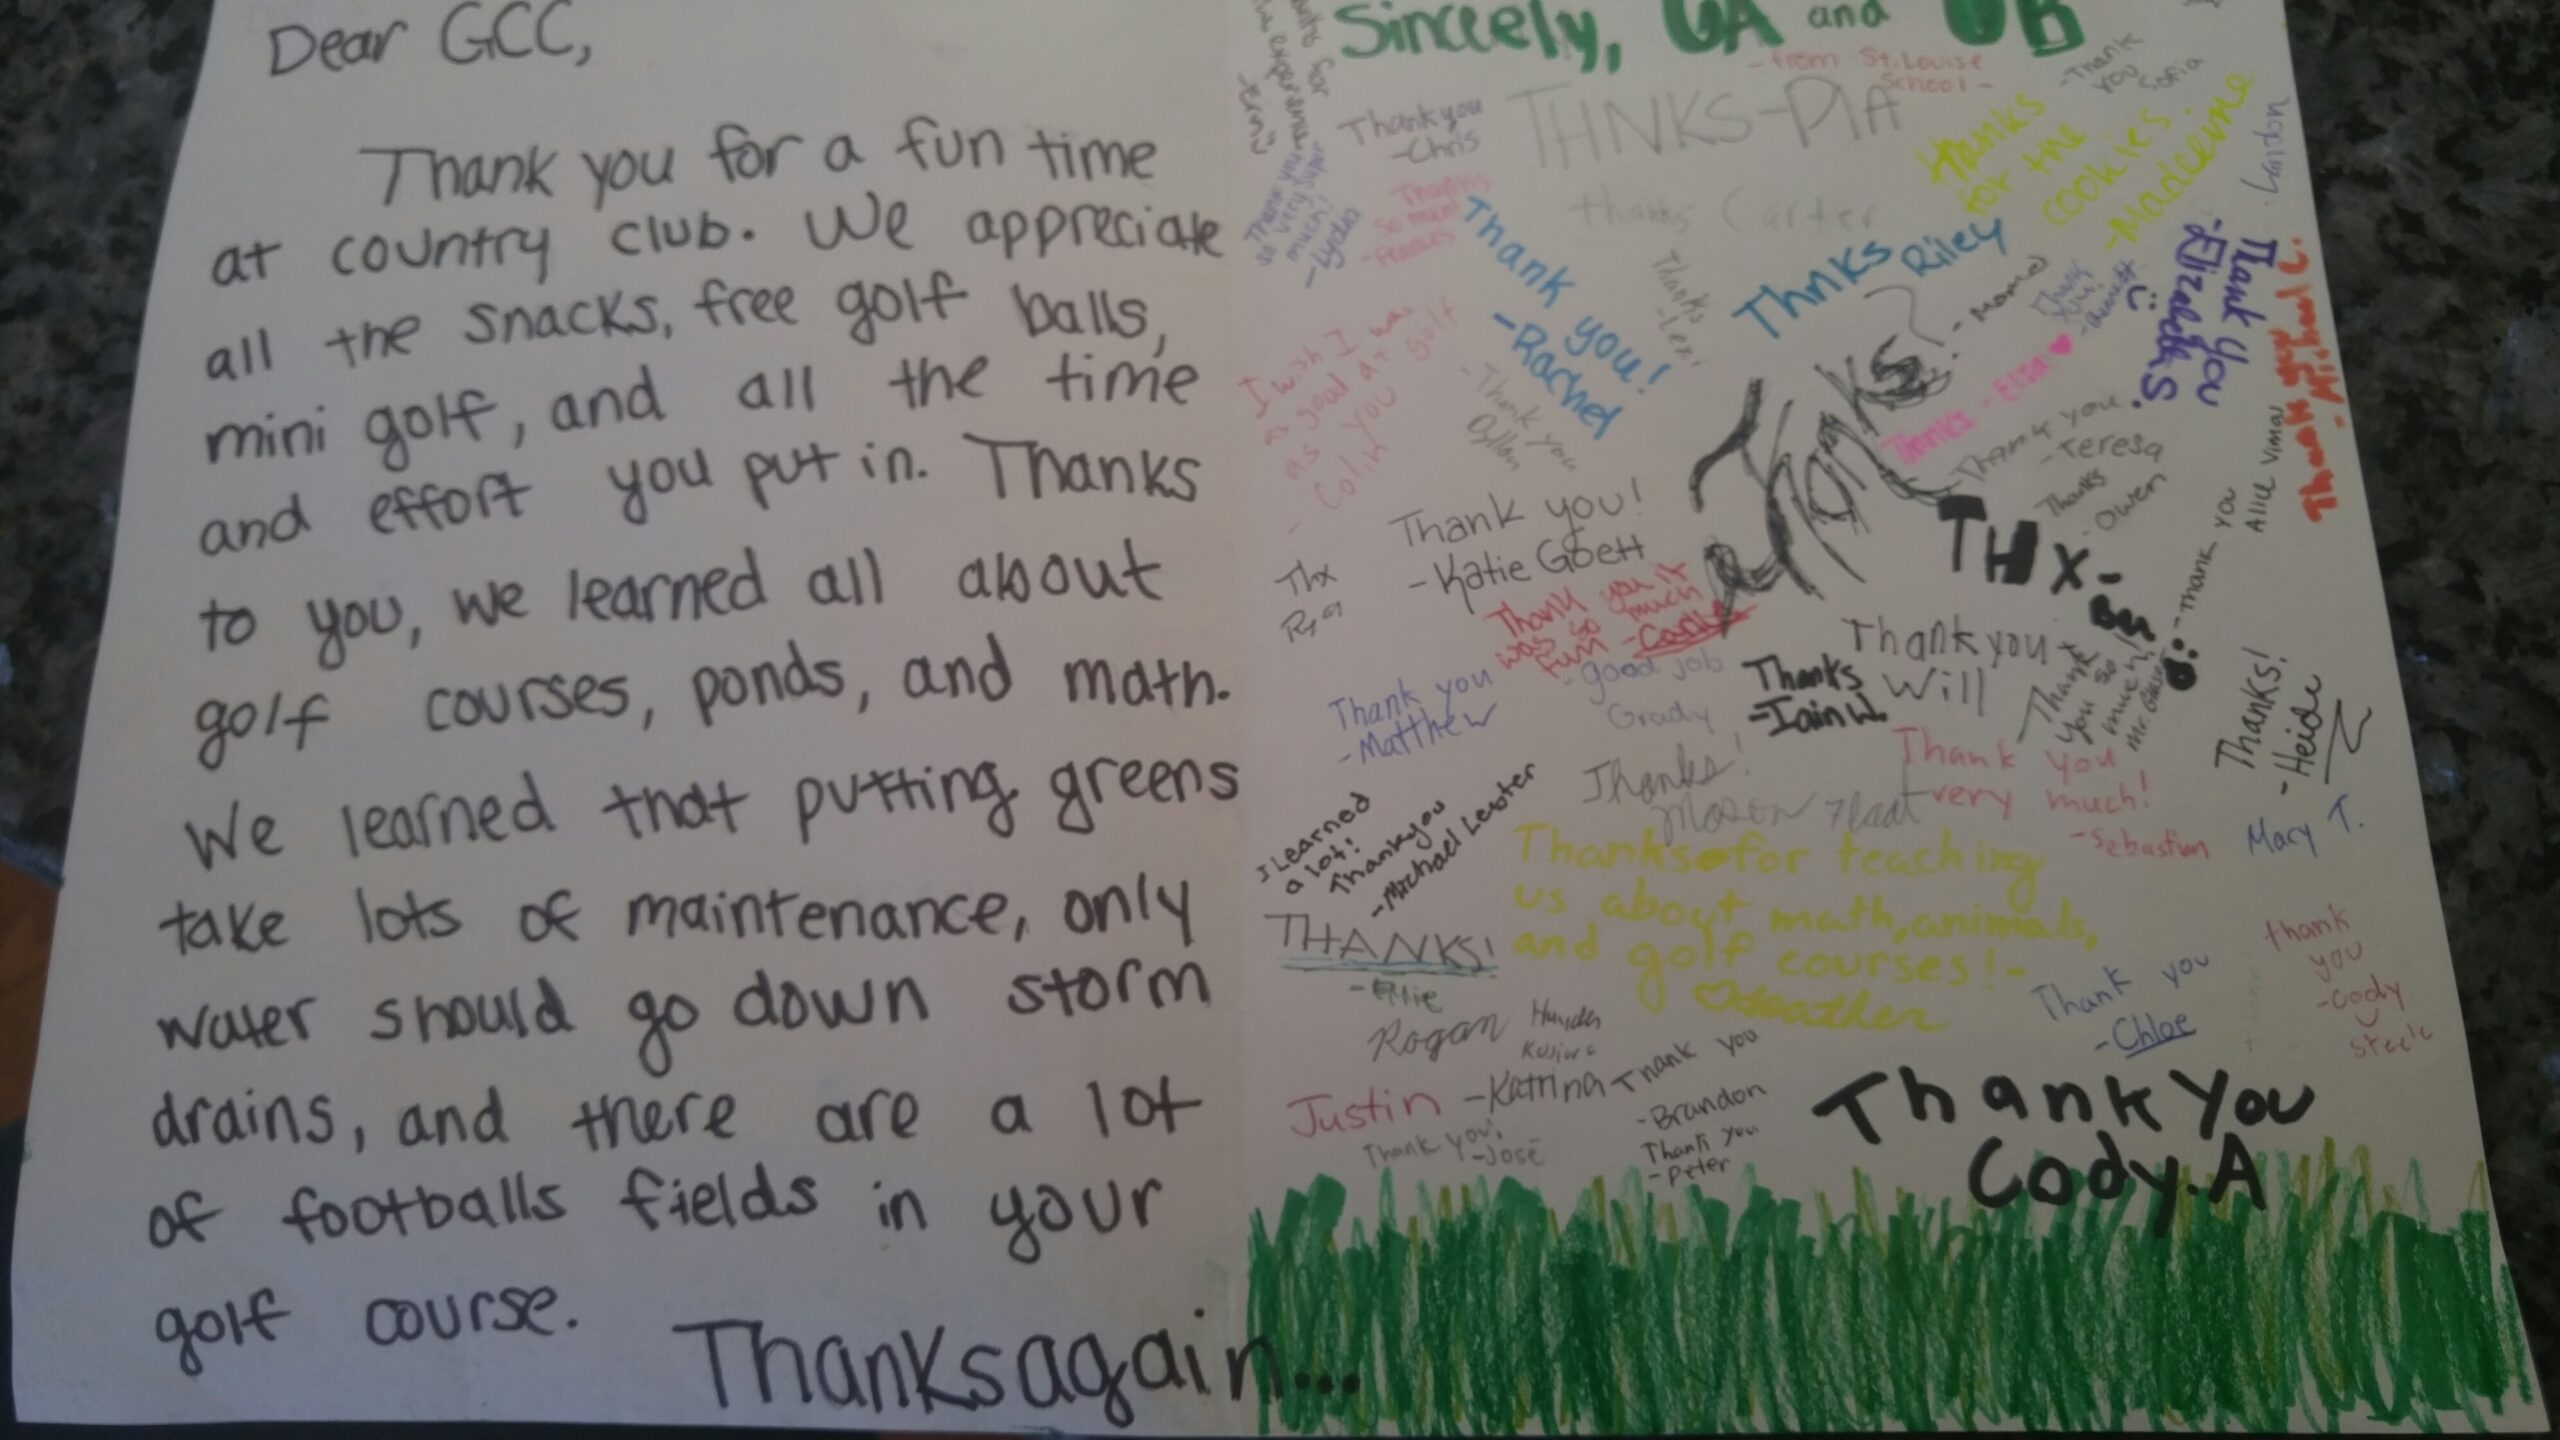 Dear GCC,
Thank you for a fun time
at country club. We appreciate
all the snacks, free golf balls,
mini golf, and all the time
and effort you put in. Thanks
to you, we learned all about
golf courses, ponds, and math.
We learned that putting greens
take lots of maintenance, only
water should go down storm
drains, and there are a lot
of footballs fields in your
golf course.
Thanks again...
Sincerely, 6A and 6B
-from St. Louise
School-
for
the experience
-Erin
Thank you
-Chris
THNKS-PIA
Thank
you
Sofia
Thanks
for the
cookies.
-Madeeine
Landon
Thank you
so very super
much!
-Lydia
Thanks
so much
-Francis
thanks Carter
Thank you!
-Rachel
Thanks
-Lexi
Thnks Riley
Thank
you!
Thank you
-Elizabeth S.
Thank you
-Michael C.
I wish I was
as good at golf
as you
-Colin
Thank you
Dillon
Thanks!
-Momo
Thanks -Elsa
Thank you
-Teresa
Thanks
-Owen
-Thank you
Alice Vimal
Thank you!
-Katie Goett
THX-
Ben
Thx
Ryan
Thank you it
was so much
fun -Carly
-good job
Grady
Thank you
Will
Thanks
-Iain W.
Thank
you so
much!
Thanks!
-Heide
Thank you
-Matthew
Thanks!
Mason Flaat
Thank you
very much!
-Sebastian
Mary T.
I Learned
a lot!
Thankyou
-Michael Lester
Thanks for teaching
us about math, animals,
and golf courses!-
Heather
THANKS!
-Ellie
Thank you
-Chloe
thank
you
-Cody
Steele
Rogan
Hayden
Justin
-Katrina
Thank you
-Brandon
Thank you!
-Jose
Thank you
-Peter
Thank You
Cody.A